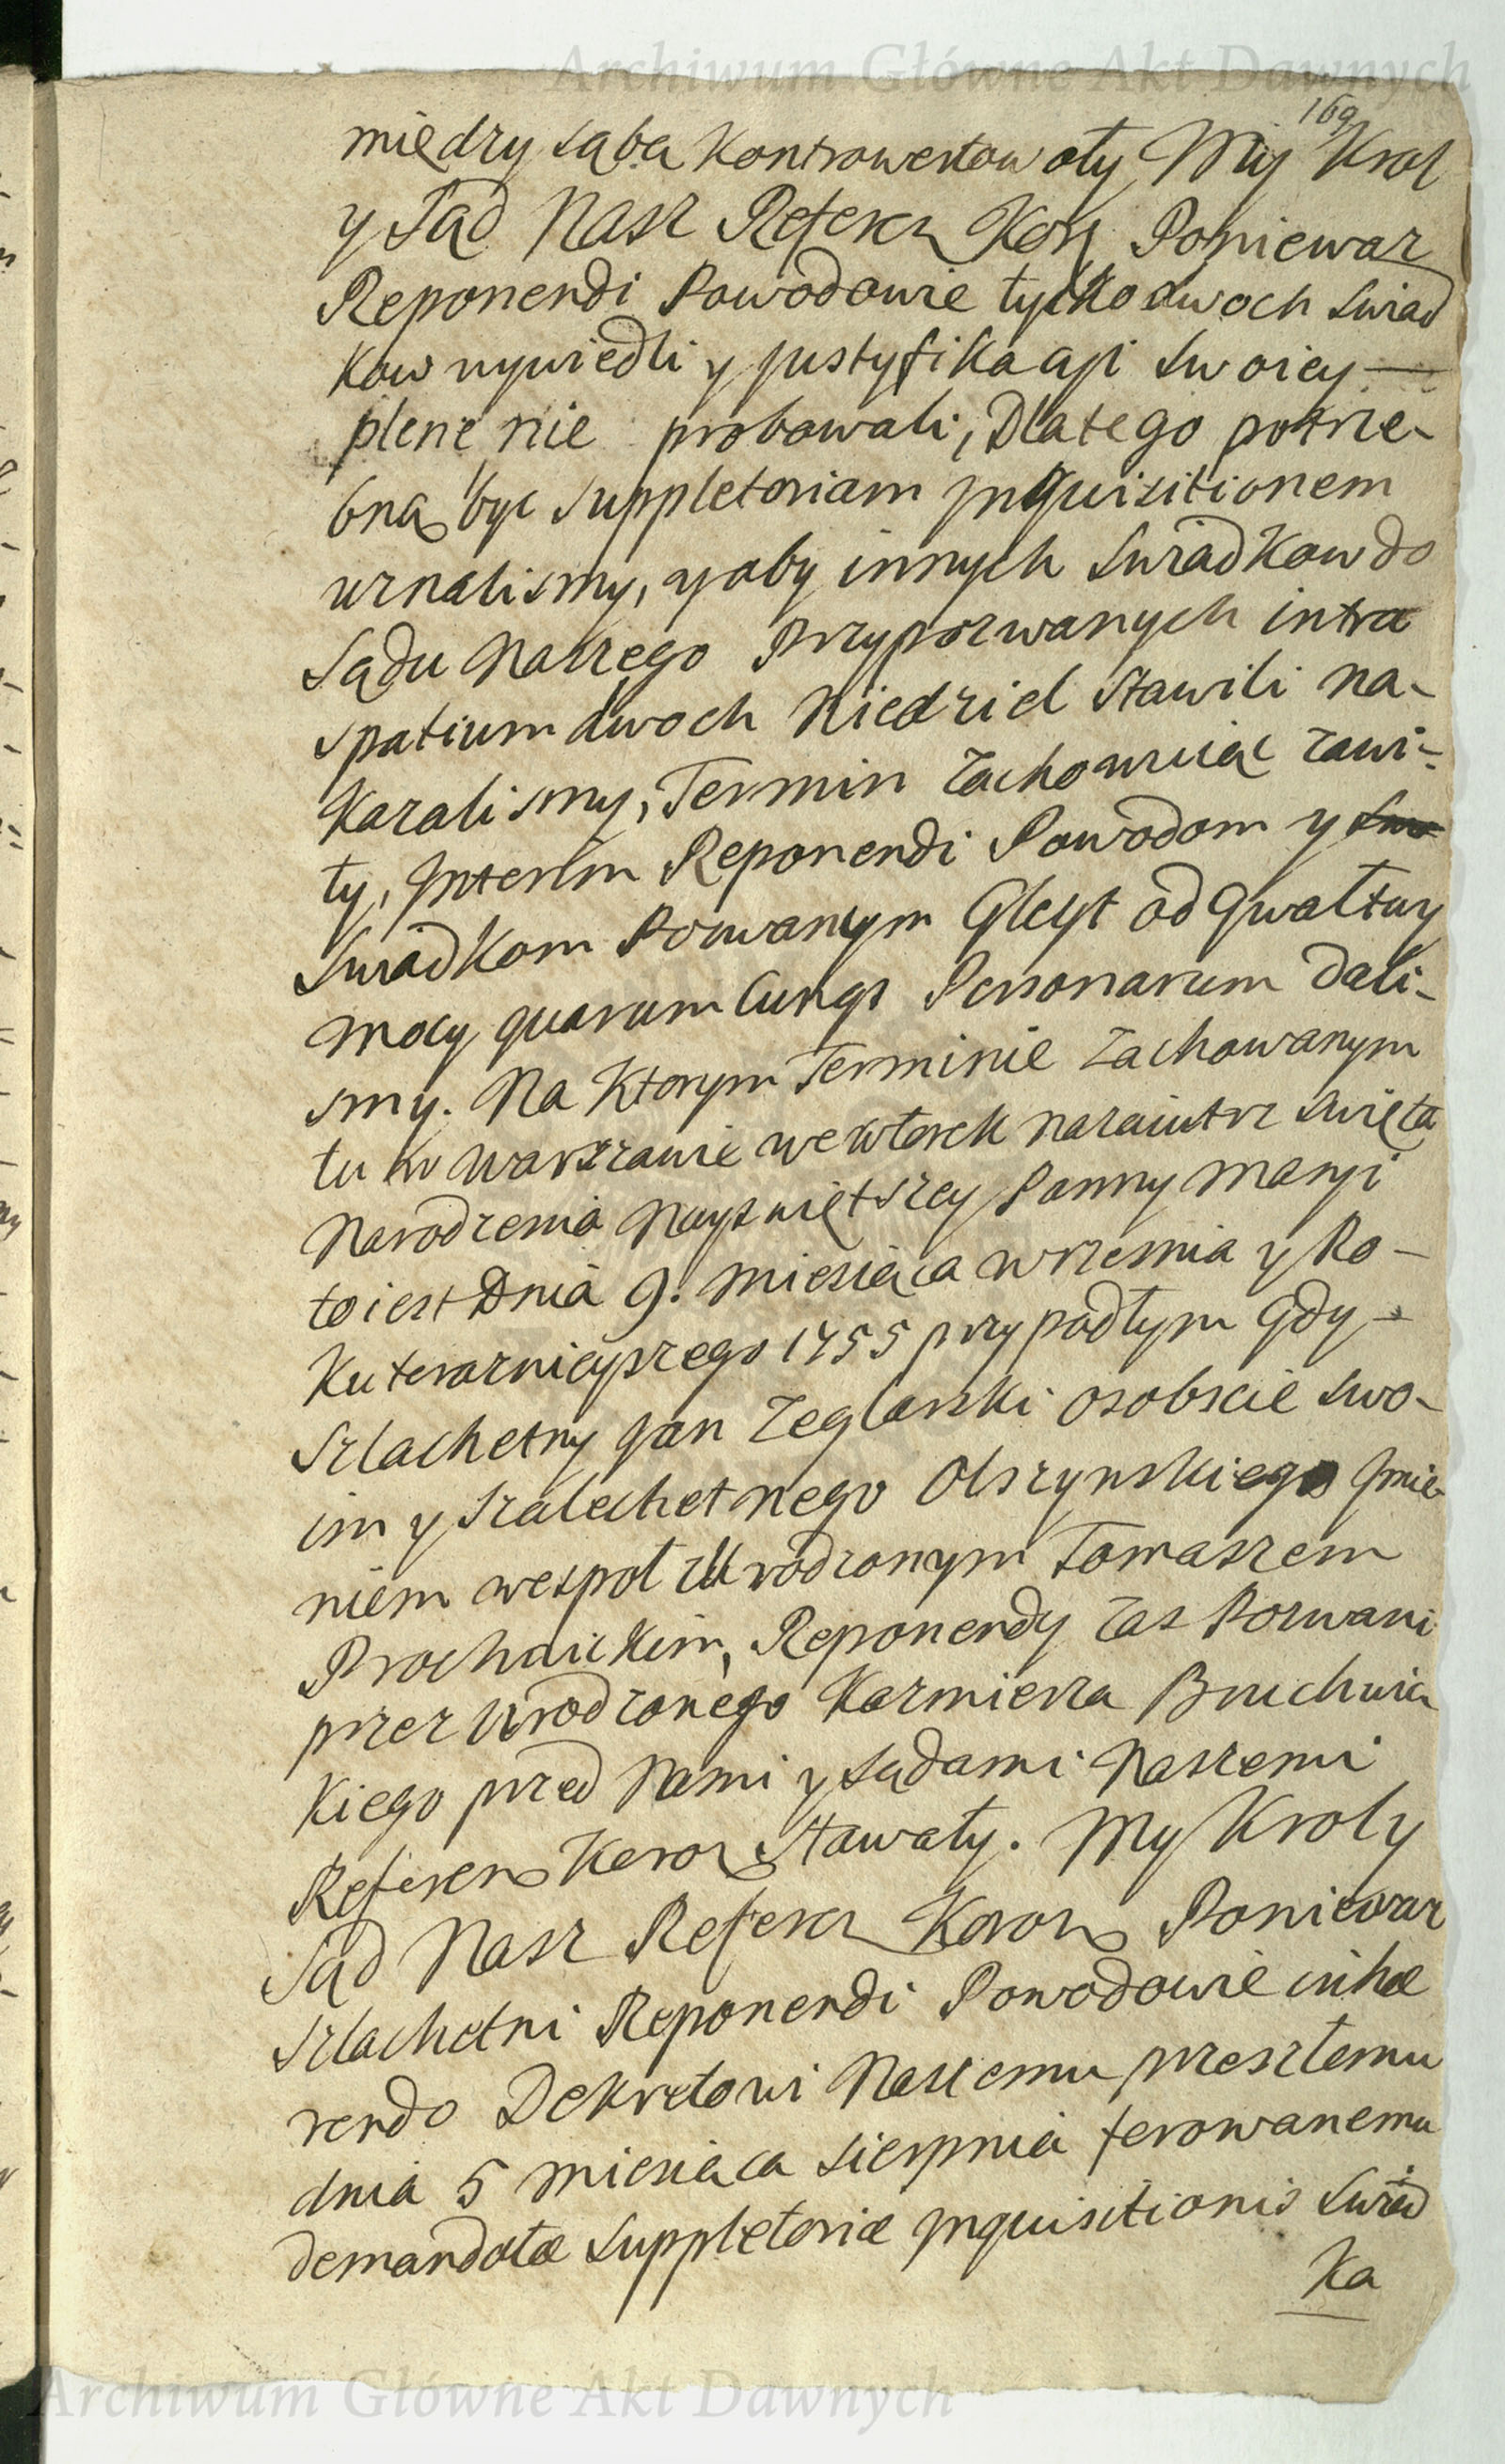 Archiwum Główne Akt Dawnych
169
między sąbą kontrowertowały My Krol
y Sąd Nasz Referen Kor Poniewaz
Reponendi Powodowie tylko dwoch swiad
kow wywiedli y justyfikacyi swoiey
plene nie probowali, Dlatego potrze-
bną byc suppletoriam jnquisitionem
uznalismy, y aby innych swiadkow do
Sądu Naszego Przypozwanych intra
spatium dwoch Niedziel stawili na-
kazalismy, Termin zachowuiąc zawi-
ty, jnterim Reponendi Powodom y
swiadkom Pozwanym Gleyt od gwałtwy
mocy quarumcunqs Personarum dali-
smy. Na Ktorym Terminie zachowanym
tu w Warszawie we wtorek nazaiutrz swięta
Narodzenia Nayswiętszey Panny Maryi
to iest Dnia 9. Miesiąca wrzesnia y Ro-
ku teraznieyszego 1755 przypadłym gdy
Szlachetny Jan Zeglarski osobscie swo-
im y Szalechetnego Olszynskiego jmie-
niem wespoł z Urodzonym Tomaszem
Prochnickim, Reponendy zas Pozwani
przez Urodzonego Kazmierza Bruchwic
kiego przed Nami y sądami Naszemi
Referen Koron stawały. My Krol y
Sąd Nasz Referen Koron Poniewaz
Szlachetni Reponendi Powodowie inhæ
rendo Dekretowi Naszemu przeszłemu
dnia 5 Miesiąca sierpnia ferowanemu
demandatæ suppletoriæ jnquisitionis swiad
ka
Archiwum Główne Akt Dawnych